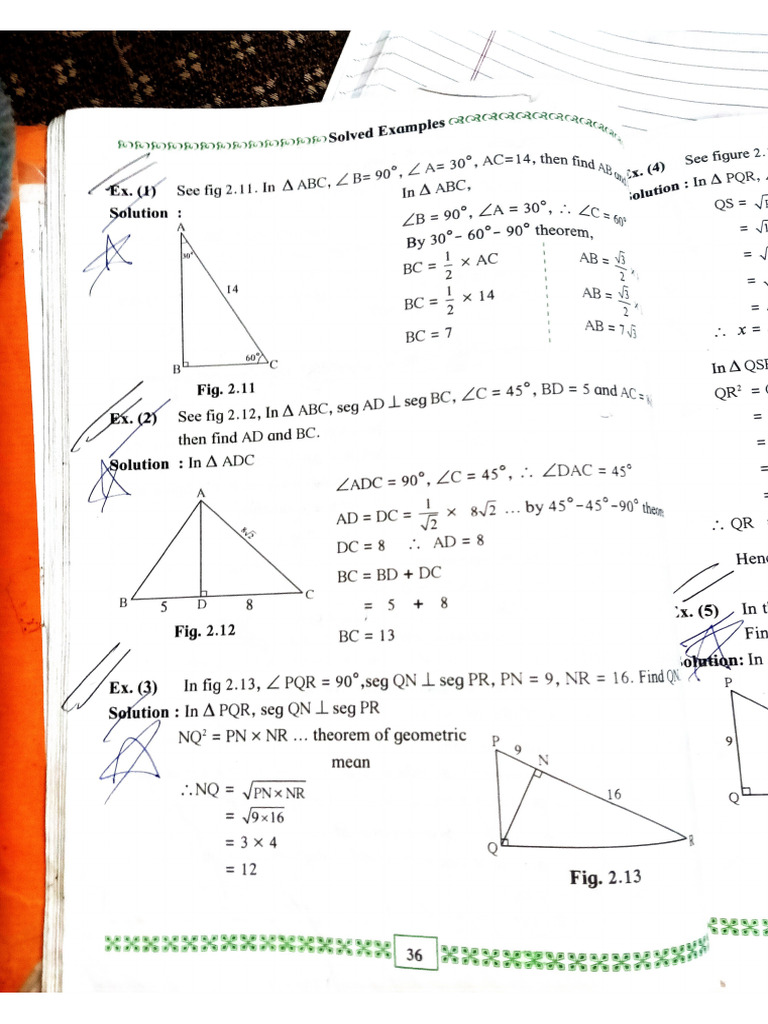 Solved Examples
Ex. (1) See fig 2.11. In Δ ABC, ∠ B= 90°, ∠ A= 30°, AC=14, then find AB and
Solution :
In Δ ABC,
∠B = 90°, ∠A = 30°, ∴ ∠C = 60°
By 30°− 60°− 90° theorem,
BC = 1/2 × AC AB = √3/2 ×
BC = 1/2 × 14 AB = √3/2 ×
BC = 7 AB = 7√3
A
30°
14
60°
B C
Fig. 2.11
Ex. (2) See fig 2.12, In Δ ABC, seg AD ⊥ seg BC, ∠C = 45°, BD = 5 and AC =
then find AD and BC.
Solution : In Δ ADC
∠ADC = 90°, ∠C = 45°, ∴ ∠DAC = 45°
AD = DC = 1/√2 × 8√2 ... by 45°−45°−90°
DC = 8 ∴ AD = 8
BC = BD + DC
= 5 + 8
BC = 13
A
8√2
B 5 D 8 C
Fig. 2.12
Ex. (3) In fig 2.13, ∠ PQR = 90°,seg QN ⊥ seg PR, PN = 9, NR = 16. Find QN
Solution : In Δ PQR, seg QN ⊥ seg PR
NQ² = PN × NR ... theorem of geometric
mean
∴NQ = √PN×NR
= √9×16
= 3 × 4
= 12
P 9 N
16
Q R
Fig. 2.13
36
Ex. (4) See figure 2.
Solution : In Δ PQR,
QS =
= 
=
=
=
∴ x =
In Δ QSR
QR² =
=
=
=
=
∴ QR
Ex. (5) In
Fin
Solution: In
P
9
Q